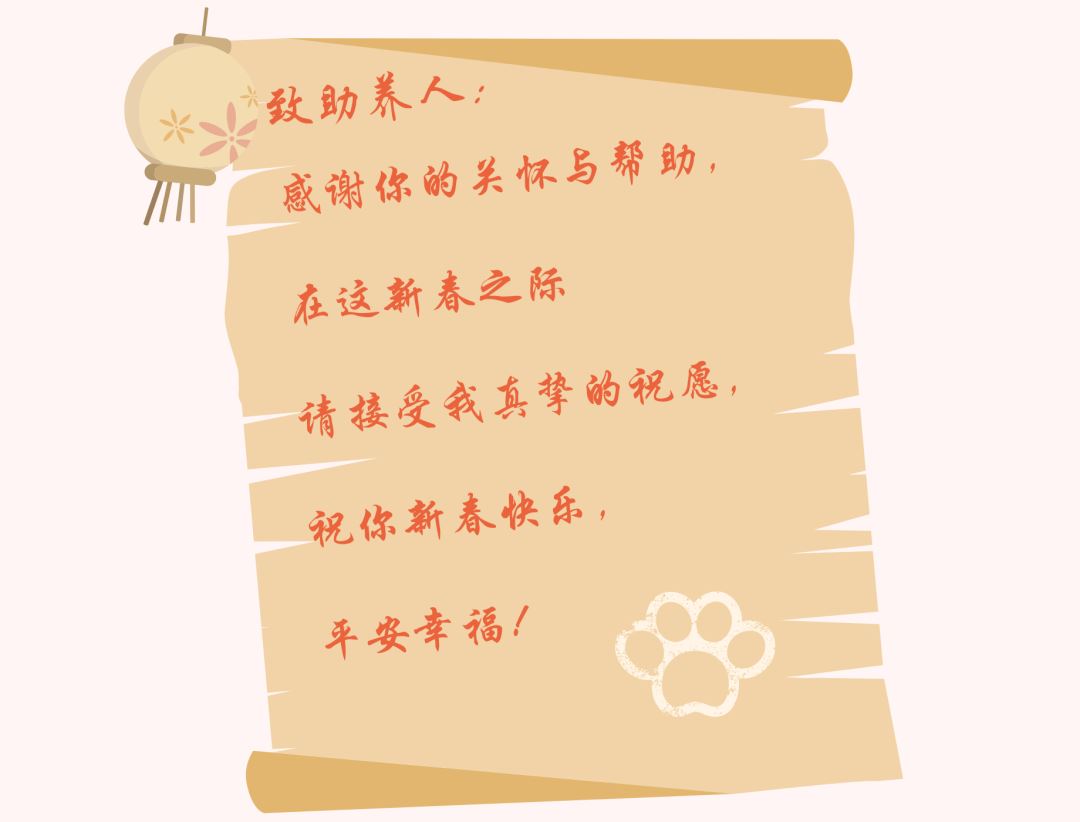 致助养人：
感谢你的关怀与帮助，
在这新春之际
请接受我真挚的祝愿，
祝你新春快乐，
平安幸福！